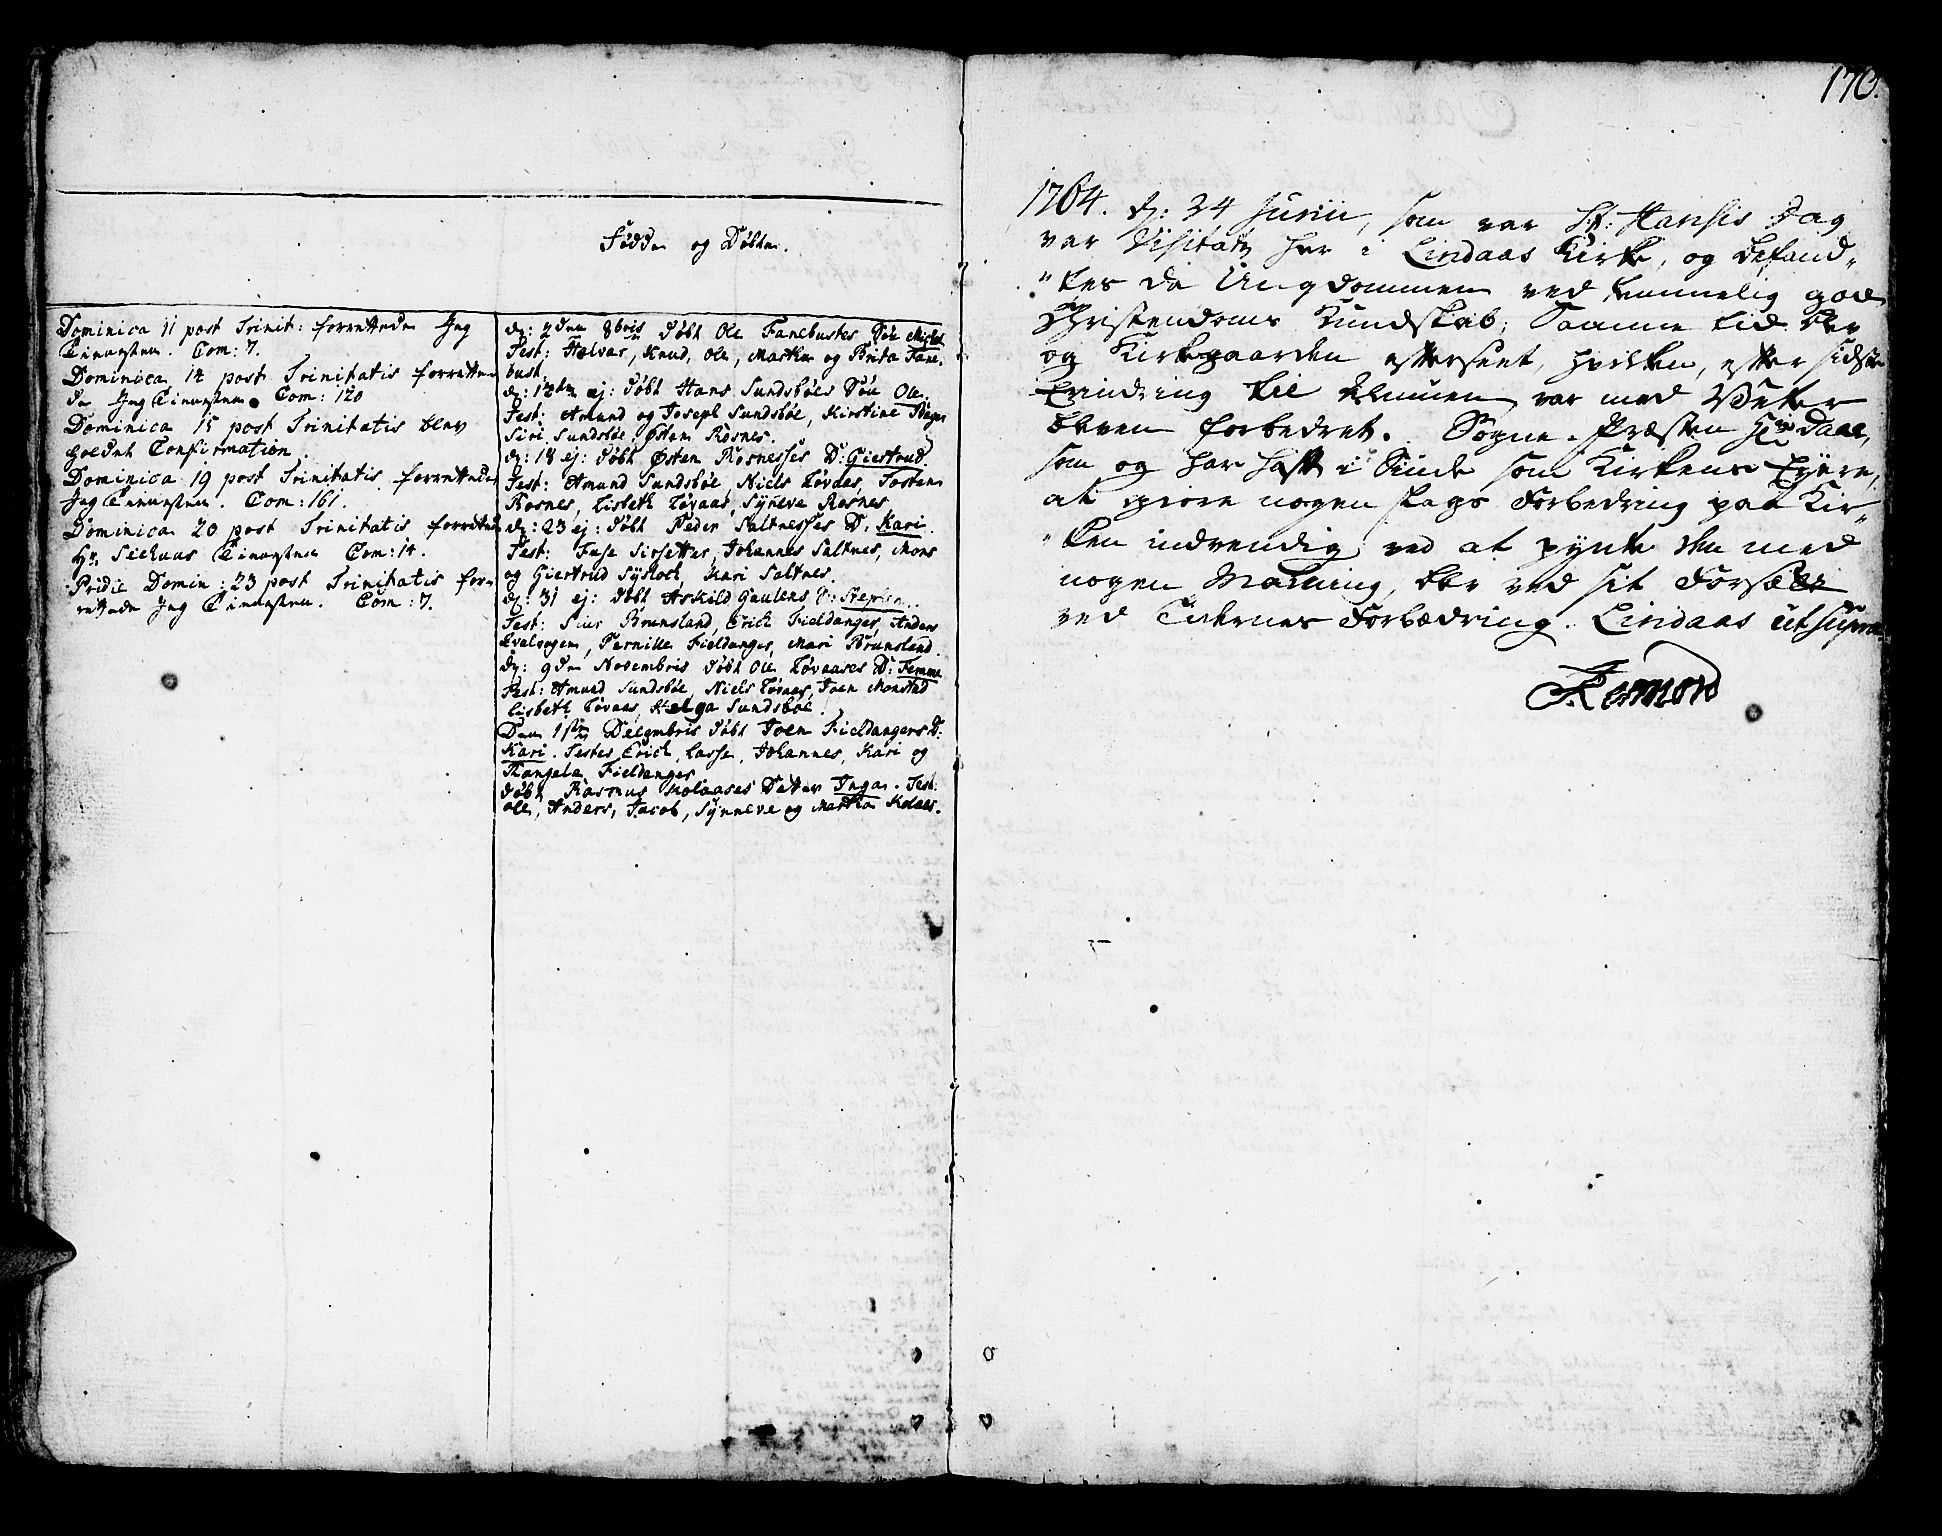 Fødde og Døbte.
Dominica 11 post Trinit: forrettede Jeg
Tienesten. Com: 7.
Dominica 14 post Trinitatis forrette-
de Jeg Tienesten. Com: 120
Dominica 15 post Trinitatis blev
holdet Confirmation
Dominica 19 post Trinitatis forrettede
Jeg Tienesten. Com: 161.
Dominica 20 post Trinitatis forrettede
Hr. Tienesten Com: 14.
Pridie Domin: 23 post Trinitatis for-
rettede Jeg Tienesten. Com: 7.
d: 8bris døbt Ole Fanebustes Søn Michel
Test: Halvar, Knud, Ole, Marthe og Brita Fane-
bust.
ej: døbt Hans Sundsbøes Søn Ole.
Test: Amund og Joseph Sundsbøe, Kirstine
Siri Sundsbøe, Østen Rosnes.
d: 18 ej: døbt Østen Rosnesses D: Giertrud.
Test: Amund Sundsbøe, Niels Tørvaas, Tosten
Rosnes, Lisbeth Tørvaas, Syneve Rosnes
d: 23 ej: døbt Peder Saltnesses D. Kari.
Test: Johannes Saltnes, Mons
og Giertrud Kari Saltnes.
d: 31 ej: døbt Askild Gaulens S: Stephen.
Test: Siur Brunsland, Erich Fieldanger, Anders
Pernille Fieldanger, Mari Brunsland.
d: 9de Novembris døbt Ole Tørvaases D: Femme
Test: Amund Sundsbøe, Niels Tørvaas, Joen Monstad
Lisbeth Tørvaas, Helga Sundsbøe.
Den 1ste Decembris døbt Joen Fieldangers D:
Kari. Testes Erich, Lasse, Johannes, Kari og
Fieldanger
døbt Rasmus Kolaases Datter Inga. Test:
Ole, Anders, Jacob, Synneve og Martha Kolaas.
170.
1764. d: 24 Junii, som var St: Hansis Dag
var Visitatz her i Lindaas Kirke, og befand-
tes da Ungdommen ved temmelig god
Christendoms Kundskab; Samme tid blev
og Kirkegaarden efterseet, hvilken, efter sidste
Erindring til Almuen, var med
bleven forbedret. Sogne-Præsten Hr: Daae,
som og har haft i Sinde som Kirkens Eyere,
at giøre nogen slags Forbedring paa Kir-
ken indvendig ved at pynte den med
nogen Mahling, blev ved sit Forsæt
ved Tidernes Forbedring. Lindaas ut supra.